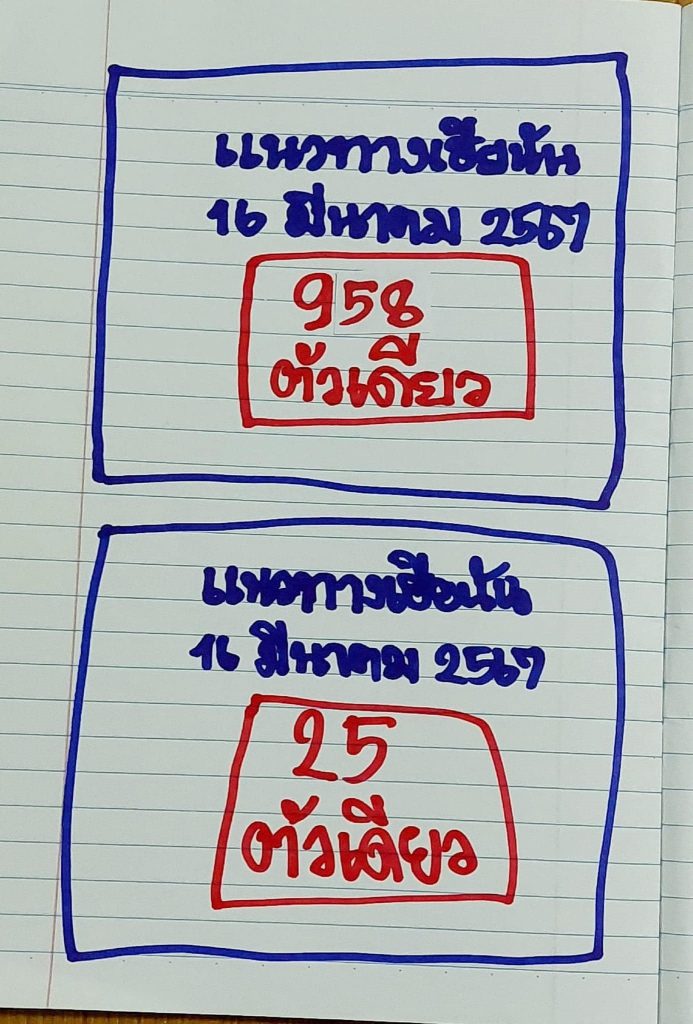 แนวทางเฮียนัน
16 มีนาคม 2567
958
ตัวเดียว
แนวทางเฮียนัน
16 มีนาคม 2567
25
ตัวเดียว